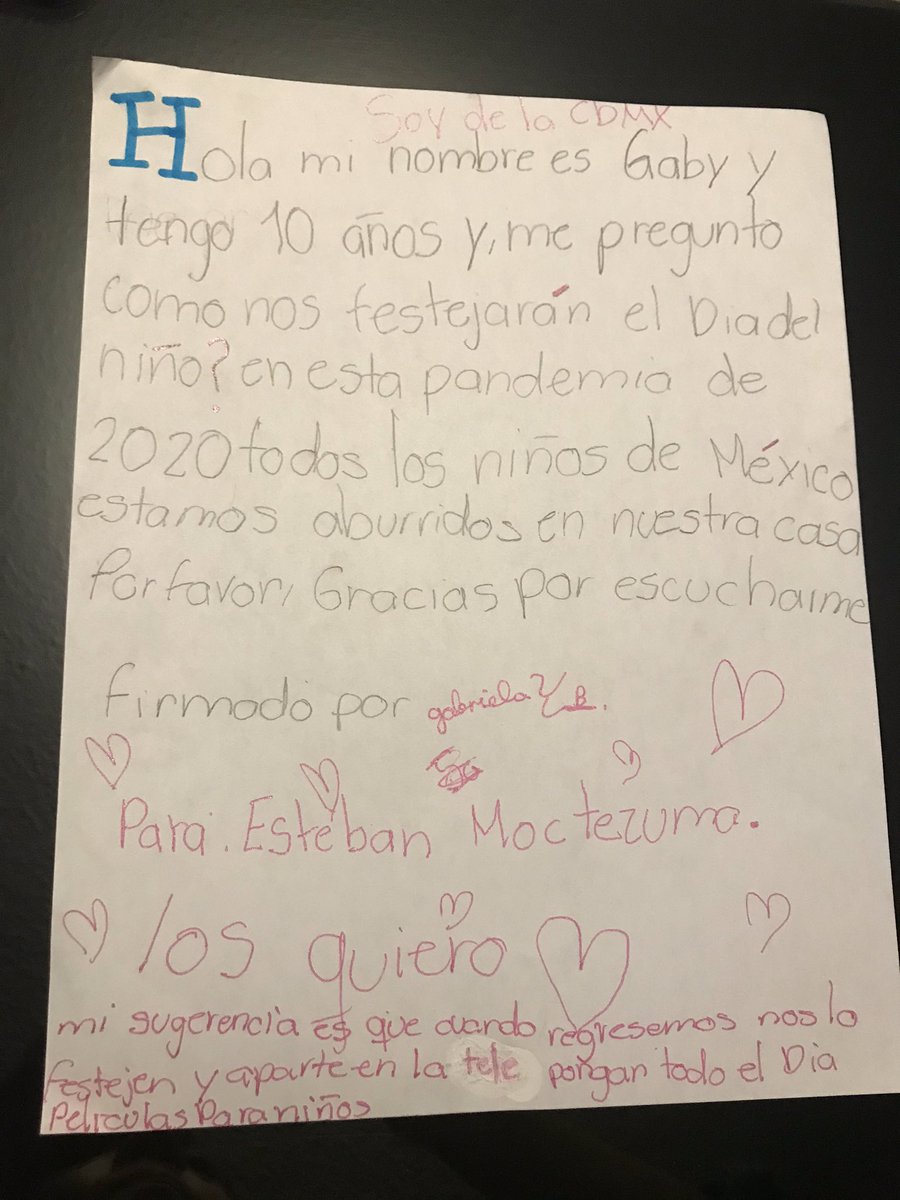 Soy de la CDMX
Hola mi nombre es Gaby y
tengo 10 años y, me pregunto
como nos festejarán el Dia del
niño? en esta pandemia de
2020 todos los niños de México
estamos aburridos en nuestra casa
Por favor, Gracias por escucharme
firmado por gabriela
Para. Esteban Moctezuma.
los quiero
mi sugerencia es que cuando regresemos nos lo
festejen y aparte en la tele pongan todo el Dia
Peliculas Para niños